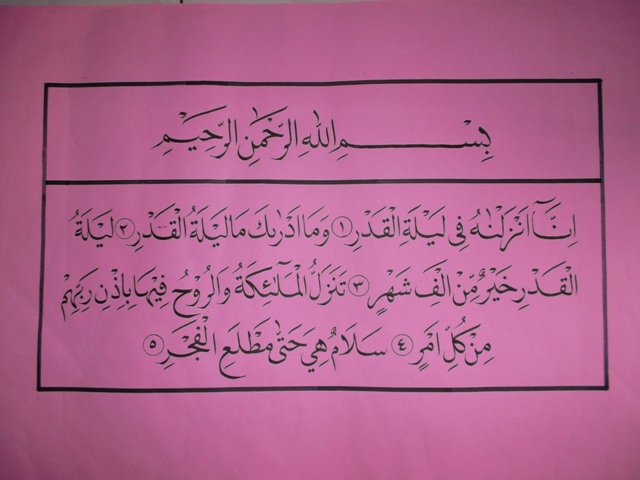 بِسْمِ اللهِ الرَّحْمٰنِ الرَّحِيْمِ
اِنَّآ اَنْزَلْنٰهُ فِى لَيْلَةِ الْقَدْرِ ١ وَمَا اَدْرٰىكَ مَا لَيْلَةُ الْقَدْرِ ٢ لَيْلَةُ
الْقَدْرِ خَيْرٌ مِّنْ اَلْفِ شَهْرٍ ٣ تَنَزَّلُ الْمَلٰٓئِكَةُ وَالرُّوْحُ فِيْهَا بِاِذْنِ رَبِّهِمْ
مِنْ كُلِّ اَمْرٍ ٤ سَلَامٌ هِيَ حَتّٰى مَطْلَعِ الْفَجْرِ ٥